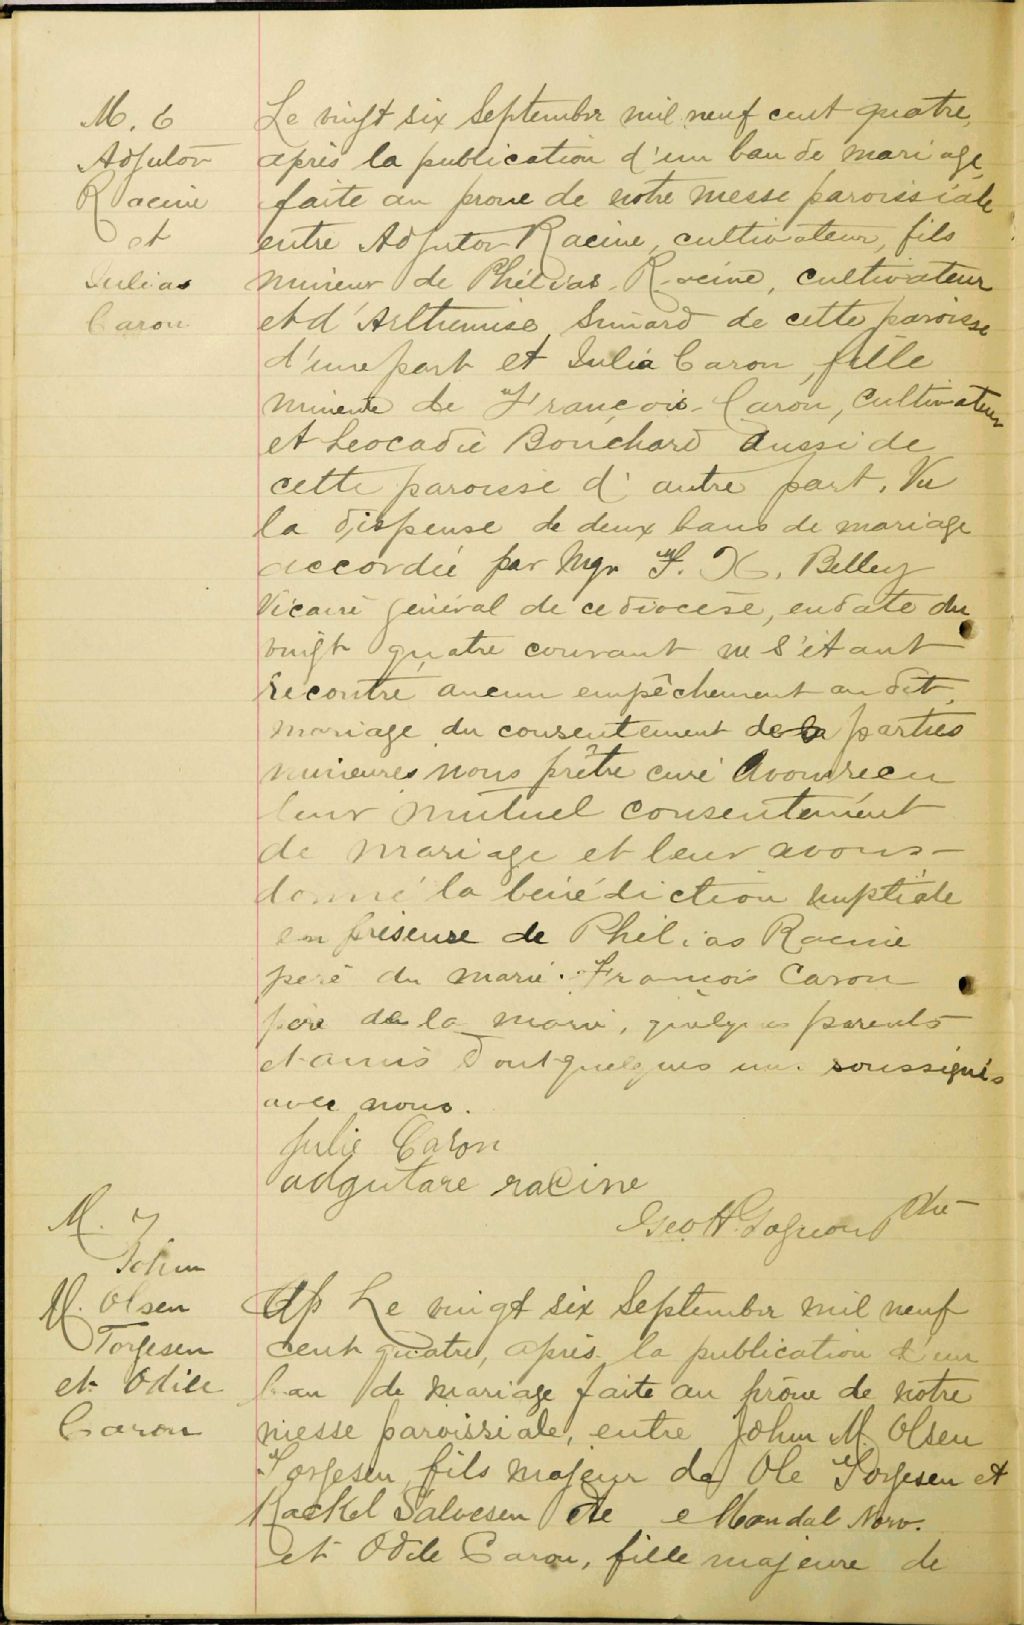 M. 6
Adjutor
Racine
et
Julias
Caron
Le vingt six Septembre mil neuf cent quatre,
après la publication d'un ban de mariage,
faite au prone de notre messe paroissiale
entre Adjutor Racine, cultivateur, fils
mineur de Phélias Racine, cultivateur
et d'Arthemise Simard de cette paroisse
d'une part et Julia Caron, fille
mineure de François Caron, cultivateur
et Leocadie Bouchard aussi de
cette paroisse d'autre part. Vu
la dispense de deux bans de mariage
accordée par Mgr F. X. Belley
Vicaire général de ce diocese, en date du
vingt quatre courant ne s'étant
recontré aucun empêchement au dit
mariage du consentement de la parties
mineures nous prêtre curé avons recu
leur mutuel consentement
de mariage et leur avons
donné la bénédiction nuptiale
en présense de Phélias Racine
pere du marié. François Caron
père de la marié, quelques parents
et amis dont quelques uns soussignés
avec nous.
Julie Caron
adgutare racine
Geo. H. Gagnon Ptre
M. 7
John
M. Olsen
Torjesen
et Odile
Caron
Le vingt six Septembre mil neuf
cent quatre, après la publication d'un
ban de mariage faite au prône de notre
messe paroissiale, entre John M. Olsen
Torjesen fils majeur de Ole Torjesen et
Rackel Salvesen de Mandal Norv.
et Odile Caron, fille majeure de